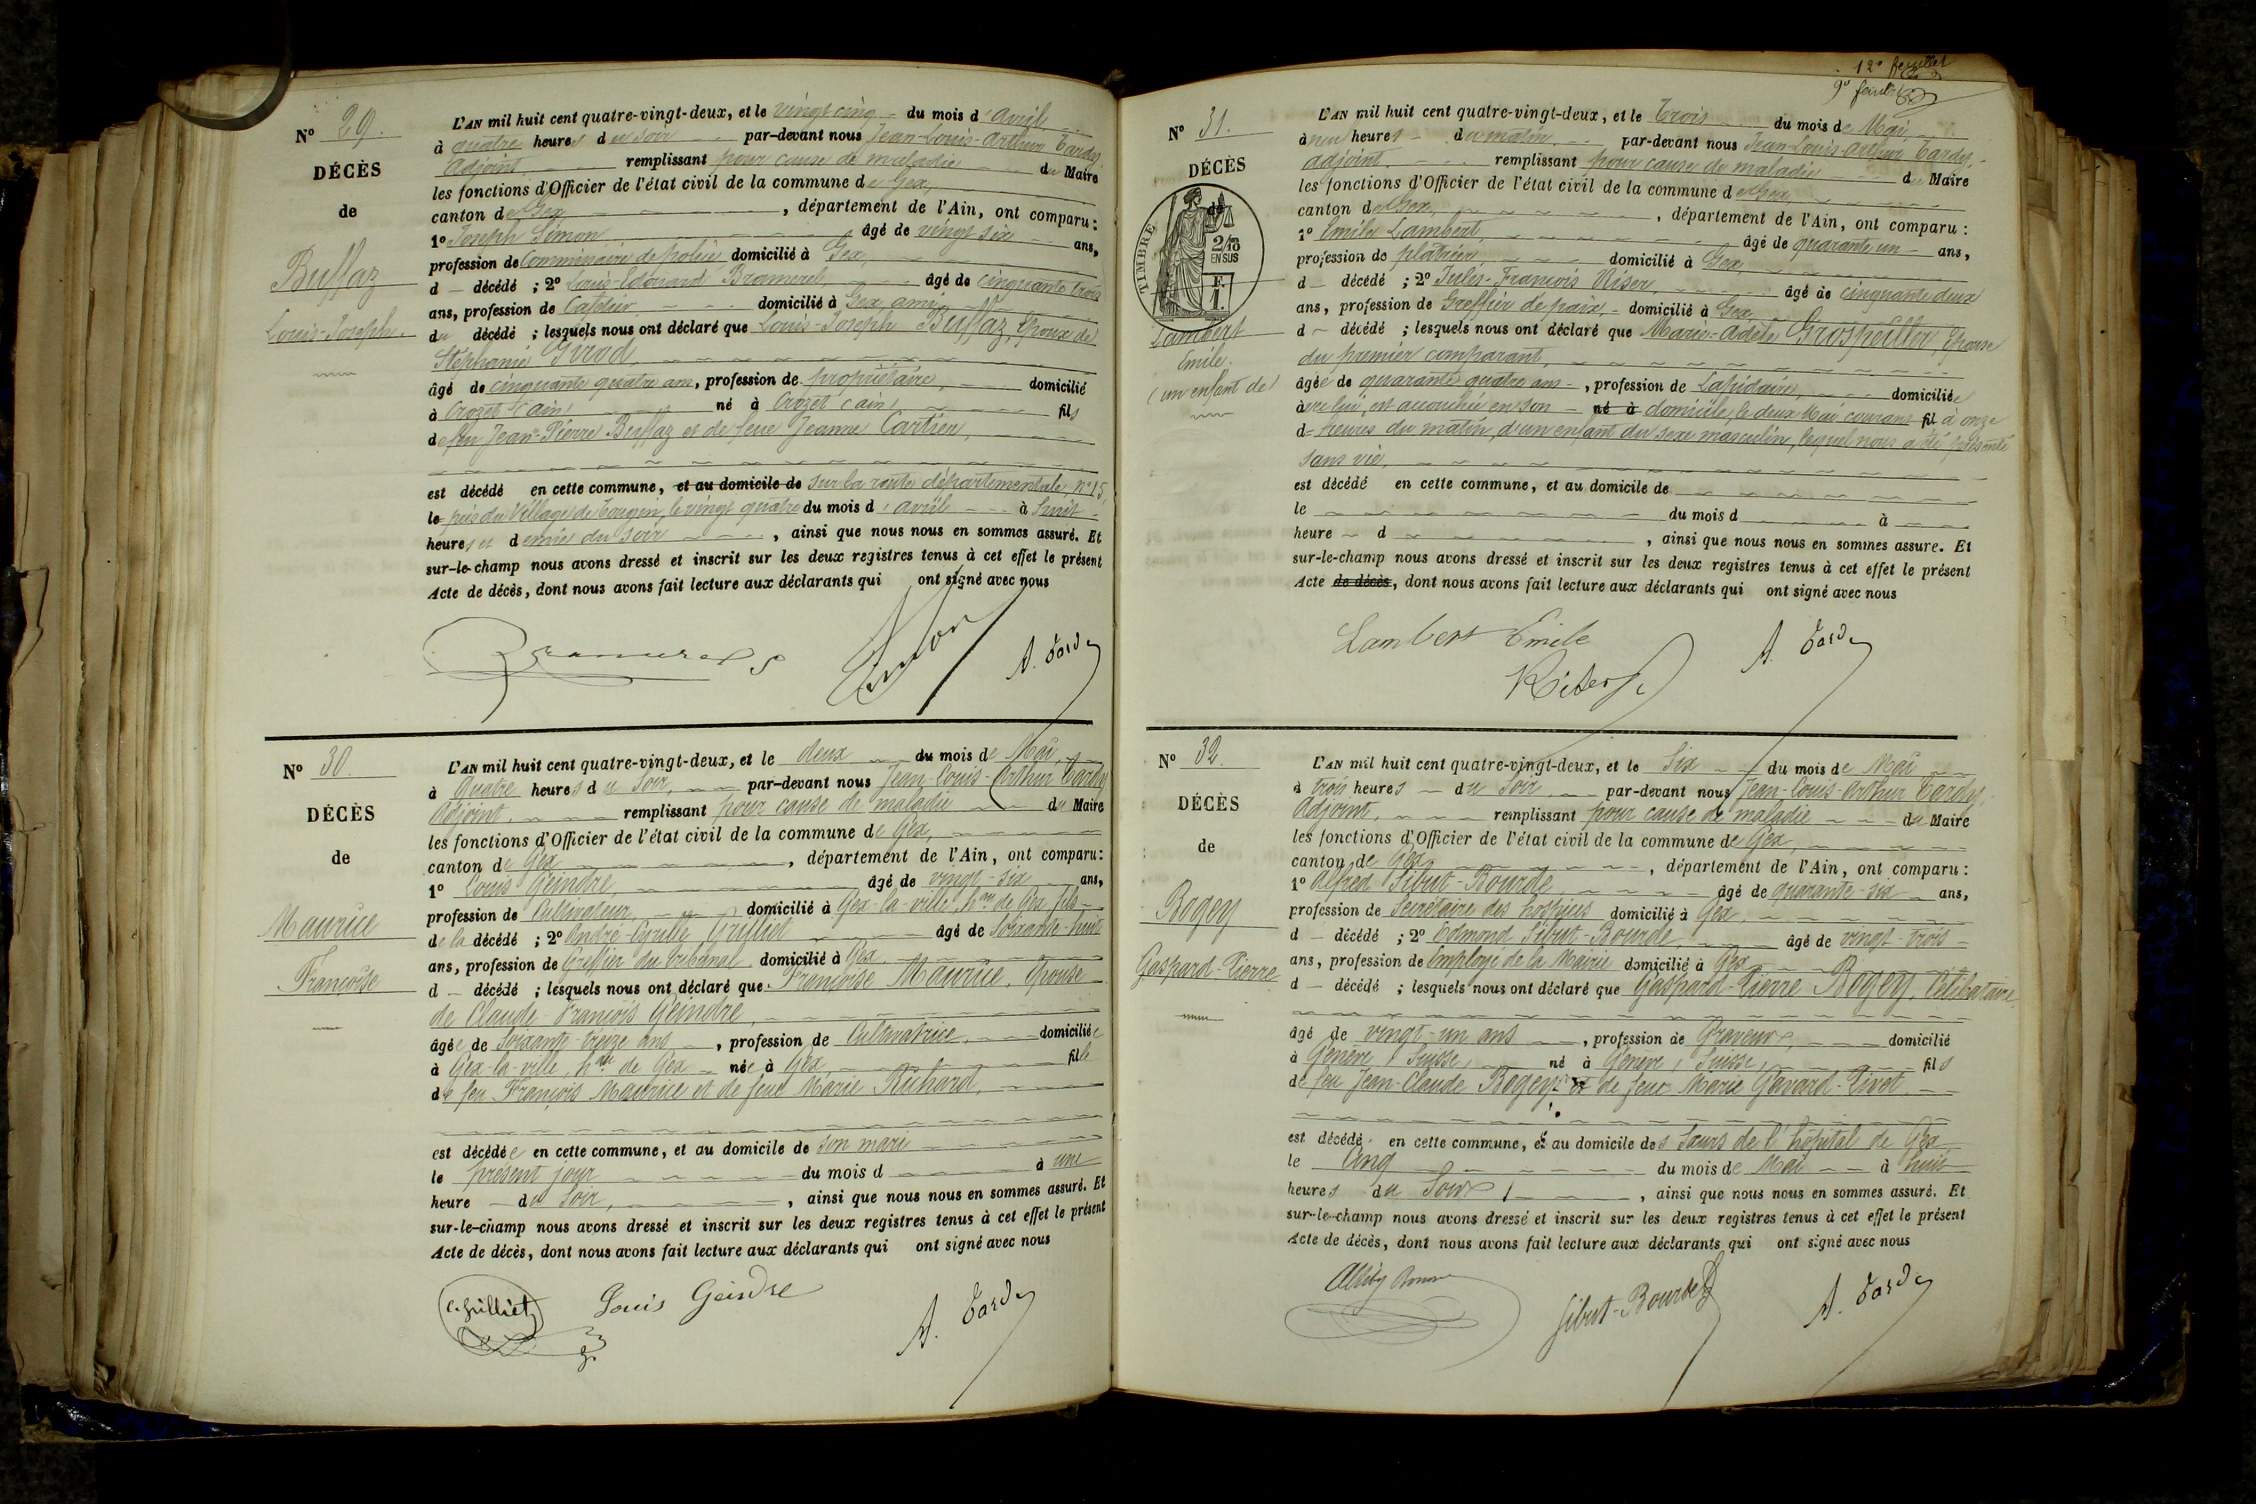 Nº 29.
DÉCÈS
de
Buffaz
Louis-Joseph.
L'AN mil huit cent quatre-vingt-deux, et le vingt cinq du mois d'Avril
à quatre heures du soir par-devant nous Jean-Louis-Arthur Tardy,
Adjoint remplissant pour cause de maladie du Maire
les fonctions d'Officier de l'état civil de la commune de Gex,
canton de Gex, département de l'Ain, ont comparu:
1º Joseph Simon âgé de vingt six ans,
profession de Commissaire de police domicilié à Gex,
d décédé ; 2º Louis-Edouard Bramerel, âgé de cinquante trois
ans, profession de Cafetier domicilié à Gex, ami
du décédé ; lesquels nous ont déclaré que Louis-Joseph Buffaz, Epoux de
Stéphanie Girod
âgé de cinquante quatre ans, profession de propriétaire, domicilié
à Crozet (ain) né à Crozet (ain) fils
de feu Jean-Pierre Buffaz et de feue Jeanne Cartier,
est décédé en cette commune, et au domicile de sur la route départementale, nº 15,
le près du Village de Tougin, le vingt quatre du mois d'avril à huit
heures et demie du soir, ainsi que nous nous en sommes assuré. Et
sur-le-champ nous avons dressé et inscrit sur les deux registres tenus à cet effet le présent
Acte de décès, dont nous avons fait lecture aux déclarants qui ont signé avec nous
Simon
A. Tardy
Nº 30.
DÉCÈS
de
Maurice
Françoise
L'AN mil huit cent quatre-vingt-deux, et le deux du mois de Mai,
à Quatre heures du Soir, par-devant nous Jean-Louis-Arthur Tardy
Adjoint, remplissant pour cause de maladie du Maire
les fonctions d'Officier de l'état civil de la commune de Gex,
canton de Gex, département de l'Ain, ont comparu:
1º Louis Geindre, âgé de vingt-six ans,
profession de Cultivateur, domicilié à Gex-la-ville, hau de Gex, fils
de la décédé ; 2º André-Cyrille Grilliet âgé de Soixante-huit
ans, profession de Greffier du tribunal domicilié à Gex
d décédé ; lesquels nous ont déclaré que Françoise Maurice, Epouse
de Claude-François Geindre,
âgée de Soixante-treize ans, profession de Cultivatrice, domiciliée
à Gex-la-ville, hau de Gex née à Gex, fille
de feu François Maurice et de feue Marie Richard,
est décédée en cette commune, et au domicile de son mari
le présent jour du mois d à une
heure du Soir, ainsi que nous nous en sommes assuré. Et
sur-le-champ nous avons dressé et inscrit sur les deux registres tenus à cet effet le présent
Acte de décès, dont nous avons fait lecture aux déclarants qui ont signé avec nous
C. Grilliet
Louis Geindre
A. Tardy
12º feuillet
9º feuillet
Nº 31.
DÉCÈS
de
TIMBRE
2/10
EN SUS
F.
1.
Lambert
Emile.
(un enfant de)
L'AN mil huit cent quatre-vingt-deux, et le Trois du mois de Mai
à neuf heures du matin par-devant nous Jean-Louis-Arthur Tardy,
adjoint remplissant pour cause de maladie du Maire
les fonctions d'Officier de l'état civil de la commune de Gex,
canton de Gex, département de l'Ain, ont comparu :
1º Emile Lambert âgé de quarante un ans,
profession de plâtrier domicilié à Gex,
d décédé ; 2º Jules-François Riser, âgé de cinquante deux
ans, profession de Greffier de paix, domicilié à Gex,
d décédé ; lesquels nous ont déclaré que Marie-Adèle Grospellier Epouse
du premier comparant,
âgée de quarante quatre ans, profession de Lapidaire, domiciliée
à avec lui, est accouchée en son né à domicile, le deux Mai courant fil à onze
d heures du matin, d'un enfant du sexe masculin, lequel nous a été présenté
sans vie.
est décédé en cette commune, et au domicile de
le du mois d à
heure d , ainsi que nous nous en sommes assuré. Et
sur-le-champ nous avons dressé et inscrit sur les deux registres tenus à cet effet le présent
Acte de décès, dont nous avons fait lecture aux déclarants qui ont signé avec nous
Lambert Emile
Riser
A. Tardy
Nº 32.
DÉCÈS
de
Bogey
Gaspard-Pierre
L'AN mil huit cent quatre-vingt-deux, et le Six du mois de Mai
à trois heures du Soir, par-devant nous Jean-Louis-Arthur Tardy,
Adjoint, remplissant pour cause de maladie du Maire
les fonctions d'Officier de l'état civil de la commune de Gex,
canton de Gex, département de l'Ain, ont comparu :
1º Alfred Sibut-Bourde, âgé de quarante-six ans,
profession de Secrétaire des hospices domicilié à Gex
d décédé ; 2º Edmond Sibut-Bourde, âgé de vingt-trois
ans, profession de Employé de la Mairie domicilié à Gex
d décédé ; lesquels nous ont déclaré que Gaspard-Pierre Bogey, Célibataire,
âgé de vingt-un ans, profession de Graveur, domicilié
à Genève, Suisse, né à Genève, Suisse, fils
de feu Jean-Claude Bogey et de feue Marie Gavard-Pivet
est décédé en cette commune, et au domicile des Sœurs de l'hôpital de Gex
le Cinq du mois de Mai à huit
heures du Soir, ainsi que nous nous en sommes assuré. Et
sur-le-champ nous avons dressé et inscrit sur les deux registres tenus à cet effet le présent
Acte de décès, dont nous avons fait lecture aux déclarants qui ont signé avec nous
Sibut-Bourde
A. Tardy